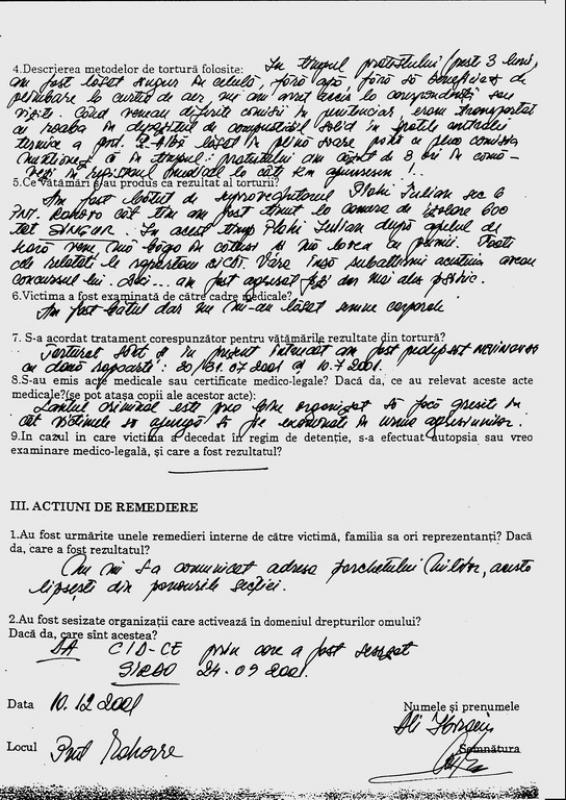 4.Descrierea metodelor de tortură folosite: În timpul protestului (peste 3 luni,
am fost lăsat singur în celulă, fără apă, fără să beneficiez de
plimbare la curtea de aer, nu am avut acces la corespondență sau
vizite. Când veneau diferite comisii în penitenciar, eram transportat
cu roaba în depozitul de combustibil solid în spatele centralei
termice a lăsat în plin soare până ce pleca comisia
Menționez că în timpul protestului am căzut de 3 ori în
5.Ce vătămări s-au produs ca rezultat al torturii?
Am fost bătut de supraveghetorul Plohi Iulian sec 6
Pnt. Rahova cât timp am fost ținut la camera de izolare 600
tot SINGUR. În acest timp Plohi Iulian după apelul de
seară mă și mă lovea cu pumnii.
cele relatate le raportam însă subalternii acestuia aveau
concursul lui. am fost agresat fizic dar mai ales psihic.
6.Victima a fost examinată de către cadre medicale?
Am fost bătut dar nu mi-au lăsat semne corporale
7. S-a acordat tratament corespunzător pentru vătămările rezultate din tortură?
Torturat sînt și în prezent întrucât am fost pedepsit NEVINOVAT
cu două rapoarte: 30/31.07 2001 și 10.7.2001.
8.S-au emis acte medicale sau certificate medico-legale? Dacă da, ce au relevat aceste acte
medicale?(se pot atașa copii ale acestor acte):
Lanțul criminal este prea bine organizat să facă greșeli în
cât victimele să ajungă să fie examinate în urma agresiunilor.
9.In cazul in care victima a decedat în regim de detenție, s-a efectuat autopsia sau vreo
examinare medico-legală, și care a fost rezultatul?
III. ACTIUNI DE REMEDIERE
1.Au fost urmărite unele remedieri interne de către victimă, familia sa ori reprezentanți? Dacă
da, care a fost rezultatul?
Nu mi s-a comunicat adresa parchetului militar, aceste
lipsești din panourile secției.
2.Au fost sesizate organizații care activează în domeniul drepturilor omului?
Dacă da, care sînt acestea?
DA CID-CE prin care a fost sesizat
SIRDO 24.09 2001.
Data 10.12 2001
Numele și prenumele
Ali
Locul Pnt Rahova
Semnătura